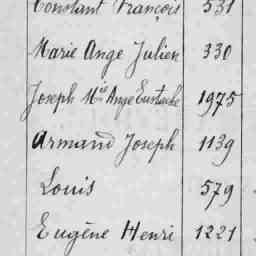 Constant François 531
Marie Ange Julien 330
Joseph Mie Ange Eustache 1975
Armand Joseph 1139
Louis 579
Eugène Henri 1221